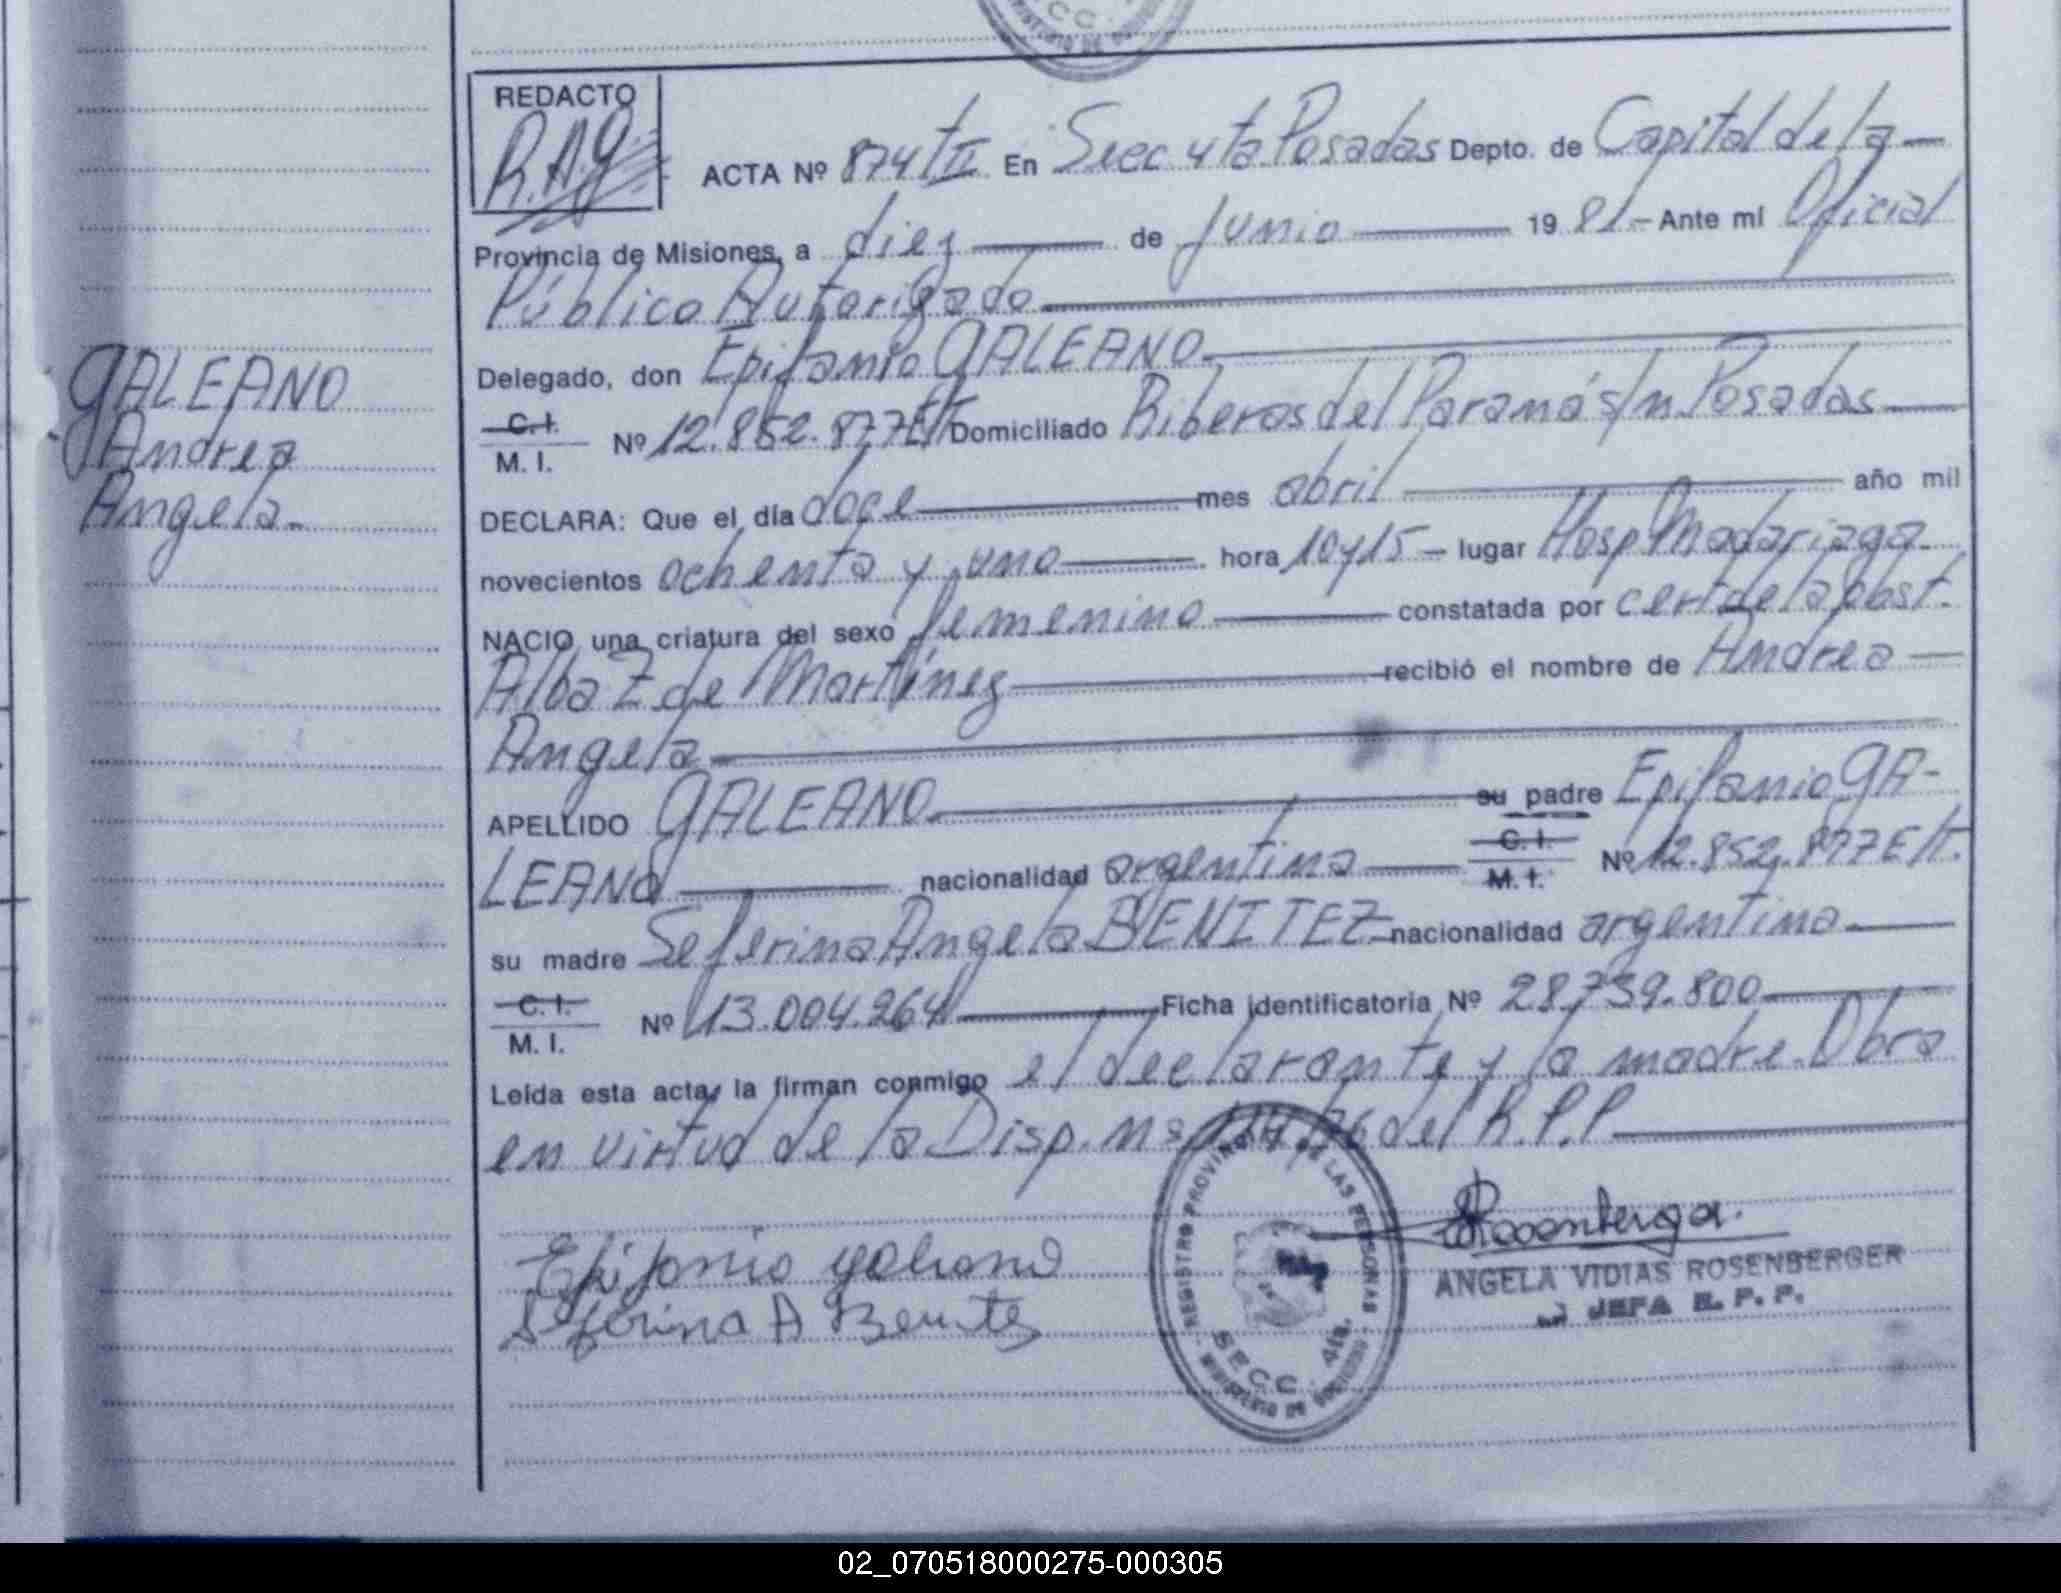 REDACTO
R.A.G.
ACTA Nº 874 TII En Secc 4ta Posadas Depto. de Capital de la
Provincia de Misiones, a diez de Junio 19 81.- Ante mí Oficial
Público Autorizado
Delegado, don Epifanio GALEANO
C.I.
M. I. Nº 12.852.877 E/T Domiciliado Riberas del Paraná s/n Posadas
DECLARA: Que el día doce mes abril año mil
novecientos ochenta y uno hora 10 y 15 lugar Hosp Madariaga
NACIO una criatura del sexo femenino constatada por cert de la obst.
Alba Z de Martínez recibió el nombre de Andrea
Angela
APELLIDO GALEANO su padre Epifanio GA-
LEANO nacionalidad argentina C.I. M.I. Nº 12.852.877 E/T.
su madre Seferina Angela BENITEZ nacionalidad argentina
C.I.
M. I. Nº 13.004.264 Ficha identificatoria Nº 28.739.800
Leída esta acta, la firman conmigo el declarante y la madre. Obra
en virtud de la Disp. nº 114/76 del R.P.P
GALEANO
Andrea
Angela
Epifanio galeano
Seferina A Benitez
Rosenberger
ANGELA VIDIAS ROSENBERGER
JEFA R. P. P.
REGISTRO PROVINCIAL DE LAS PERSONAS
SECC. 4ta.
MINISTERIO DE GOBIERNO
02_070518000275-000305